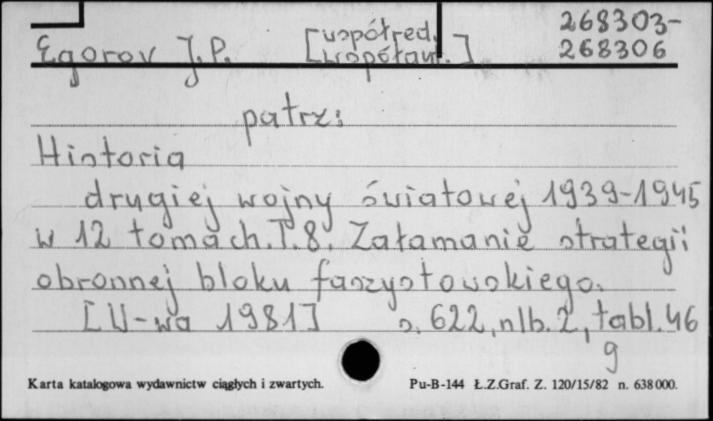 268303-
268306
Egorov J.P. [współred.
[współaut.]
patrz:
Historia
drugiej wojny światowej 1939-1945
w 12 tomach. T. 8. Załamanie strategii
obronnej bloku faszystowskiego.
[W-wa 1981] s. 622, nlb. 2, tabl. 46
g
Karta katalogowa wydawnictw ciągłych i zwartych. Pu-B-144 Ł.Z.Graf. Z. 120/15/82 n. 638000.